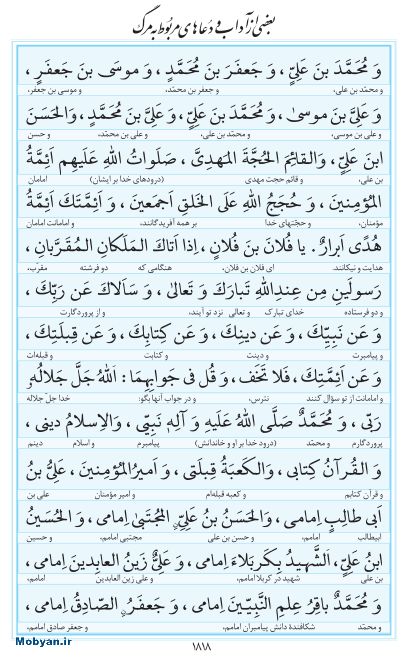 بعضی از آداب و دعاهای مربوط به مرگ
وَ مُحَمَّدَ بنَ عَلِیٍّ ، وَ جَعفَرَ بنَ مُحَمَّدٍ ، وَ موسَی بنَ جَعفَرٍ ،
و محمّد بن علی، و جعفر بن محمّد، و موسی بن جعفر،
وَ عَلِیَّ بنَ موسیٰ ، وَ مُحَمَّدَ بنَ عَلِیٍّ ، وَ عَلِیَّ بنَ مُحَمَّدٍ ، وَالحَسَنَ
و علی بن موسی، و محمّد بن علی، و علی بن محمّد، و حسن
ابنَ عَلِیٍّ ، وَالقائِمَ الحُجَّةَ المَهدِیَّ ، صَلَواتُ اللهِ عَلَیهِم اَئِمَّةُ
بن علی، و قائم حجت مهدی (درودهای خدا بر ایشان) امامان
المُؤمِنینَ ، وَ حُجَجُ اللهِ عَلَی الخَلقِ اَجمَعینَ ، وَ اَئِمَّتَكَ اَئِمَّةُ
مؤمنان، و حجّتهای خدا بر همه آفریدگانند، و امامانت امامان
هُدًی اَبرارٌ. یا فُلانَ بنَ فُلانٍ ، اِذا اَتاكَ المَلَکانِ المُقَرَّبانِ ،
هدایت و نیکانند. ای فلان بن فلان، هنگامی که دو فرشته مقرّب،
رَسولَینِ مِن عِندِاللهِ تَبارَكَ وَ تَعالیٰ ، وَ سَالاكَ عَن رَبِّكَ ،
و دو فرستاده خدای تبارک و تعالی نزد تو آیند، و از پروردگارت
وَ عَن نَبِیِّكَ ، وَ عَن دینِكَ ، وَ عَن کِتابِكَ ، وَ عَن قِبلَتِكَ ،
و پیامبرت و دینت و کتابت و قبله‌ات
وَ عَن اَئِمَّتِكَ ، فَلا تَخَف ، وَ قُل فی جَوابِهِما : اَللهُ جَلَّ جَلالُهُ
و امامانت از تو سؤال کنند نترس، و در جواب آنها بگو: خدا جلّ جلاله
رَبّی ، وَ مُحَمَّدٌ صَلَّی اللهُ عَلَیهِ وَ آلِهِ نَبِیّی ، وَالاِسلامُ دینی ،
پروردگارم و محمّد (درود خدا بر او و خاندانش) پیامبرم و اسلام دینم
وَ القُرآنُ کِتابی ، وَالکَعبَةُ قِبلَتی ، وَ اَمیرُالمُؤمِنینَ ، عَلِیُّ بنُ
و قرآن کتابم و کعبه قبله‌ام و امیر مؤمنان علی بن
اَبی طالِبٍ اِمامی ، وَالحَسَنُ بنُ عَلِیٍّ المُجتَبیٰ اِمامی ، وَ الحُسَینُ
ابیطالب امامم، و حسن بن علی مجتبی امامم، و حسین
ابنُ عَلِیٍّ ، اَلشَّهیدُ بِکَربَلاءَ اِمامی ، وَ عَلِیٌّ زَینُ العابِدینَ اِمامی ،
بن علی شهید در کربلا امامم، و علی زین العابدین امامم،
وَ مُحَمَّدٌ باقِرُ عِلمِ النَّبِیّینَ اِمامی ، وَ جَعفَرٌ الصّادِقُ اِمامی ،
و محمّد شکافندهٔ دانش پیامبران امامم، و جعفر صادق امامم،
۱۸۱۸
Mobyan.ir